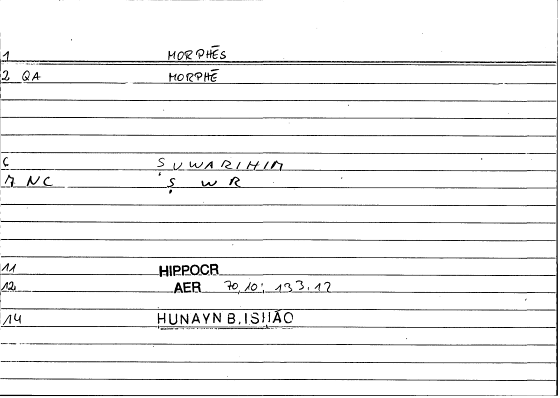 1 MORPHĒS
2 QA MORPHĒ
6 ṢUWARIHIM
7 NC Ṣ W R
11 HIPPOCR
12 AER 70,10; 133,12
14 HUNAYN B. ISḤĀQ